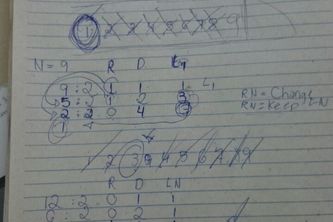 1 2 3 4 5 6 7 8 9
N = 9 R D L1
9 : 2 1 1 1 L1
5 : 2 1 2 3
2 : 2 0 4 3
1
RN = Change
RN = Keep LN
1 2 3 4 5 6 7 8 9
R D LN
12 : 2 0 1 1
6 : 2 0 2 1